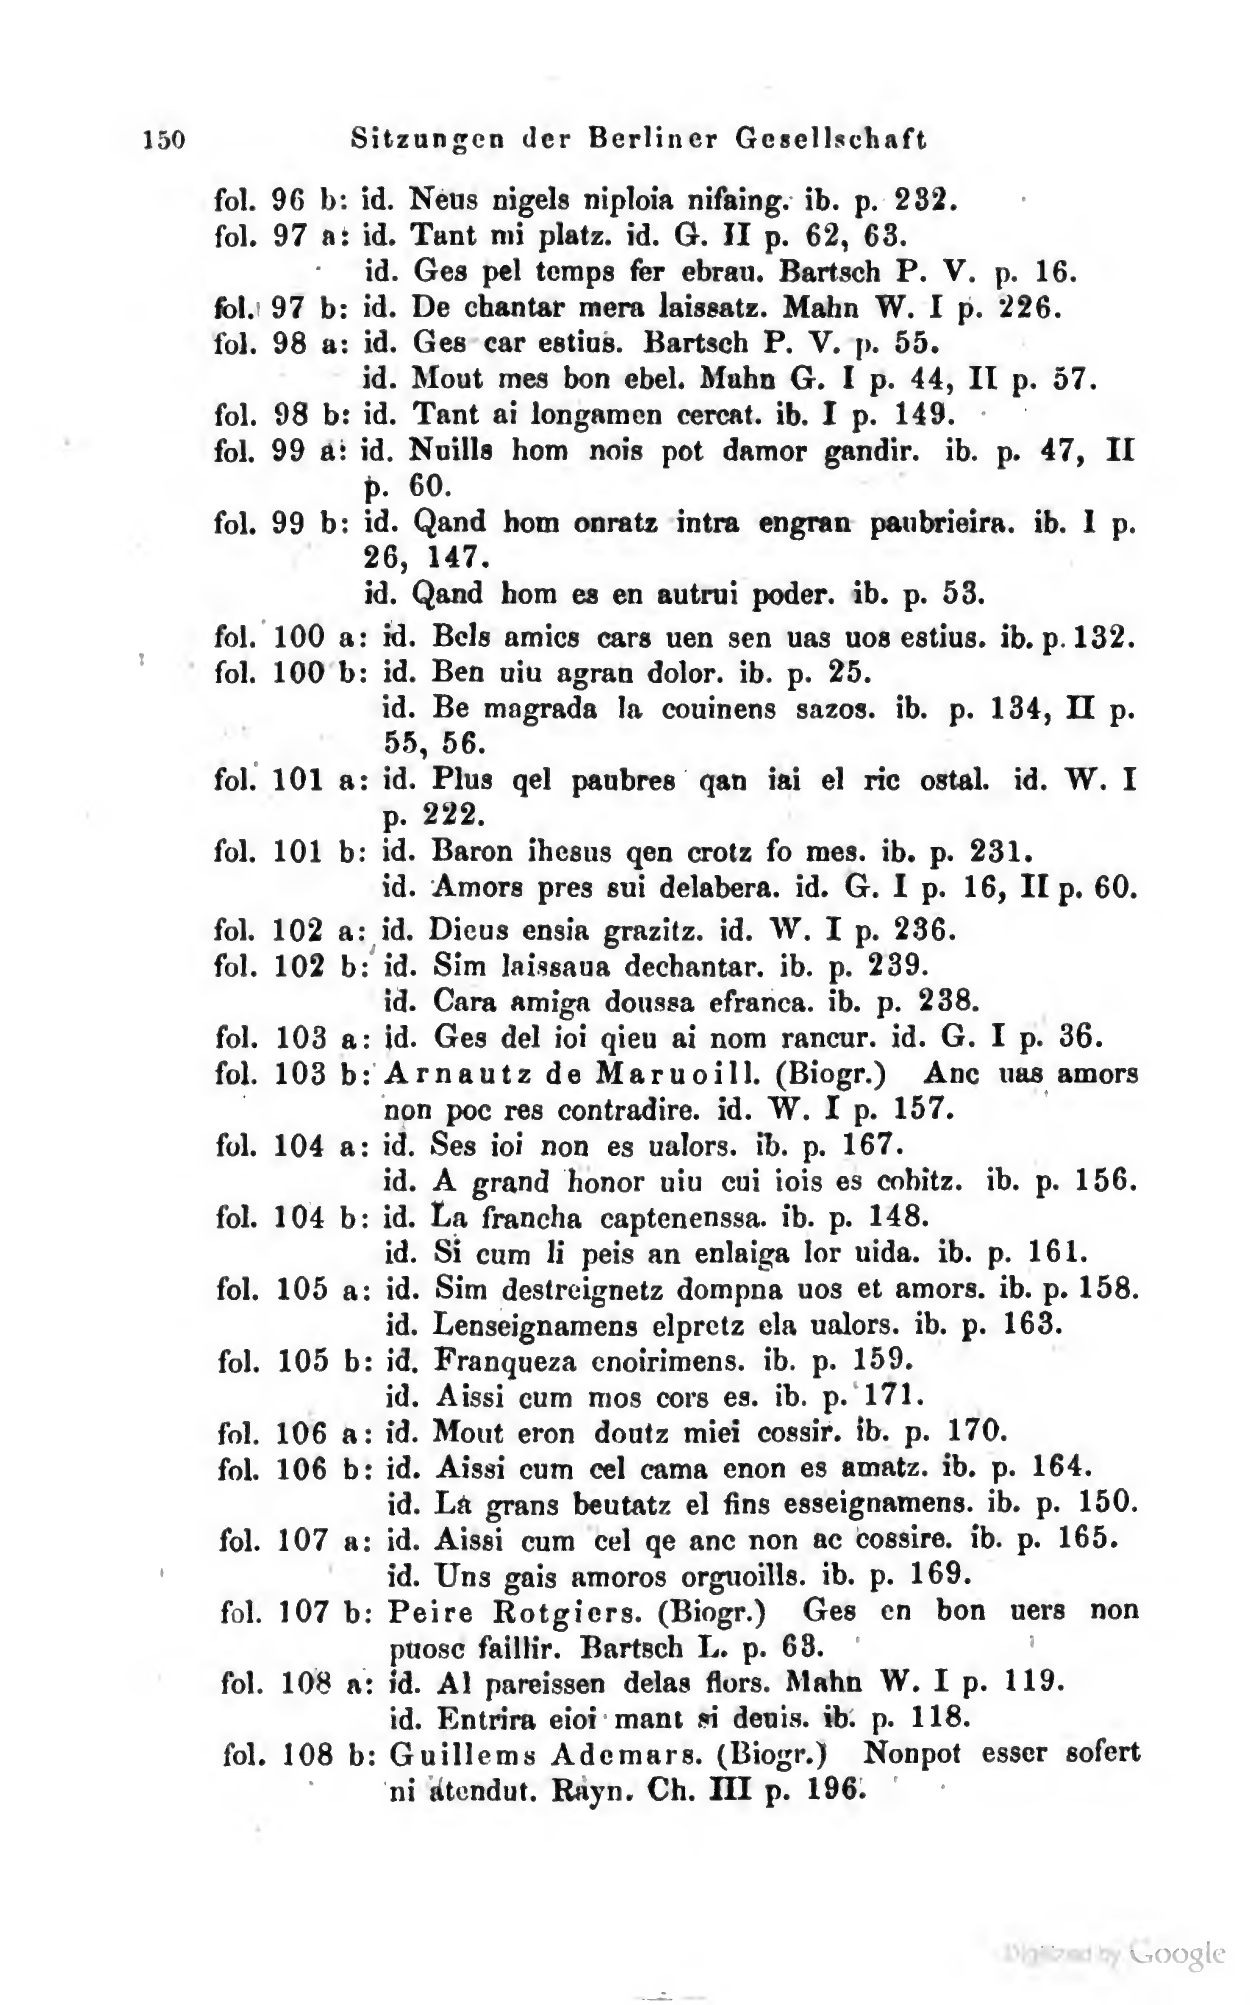 150 Sitzungen der Berliner Gesellschaft
fol. 96 b: id. Neus nigels niploia nifaing. ib. p. 232.
fol. 97 a: id. Tant mi platz. id. G. II p. 62, 63.
id. Ges pel temps fer ebrau. Bartsch P. V. p. 16.
fol. 97 b: id. De chantar mera laissatz. Mahn W. I p. 226.
fol. 98 a: id. Ges car estius. Bartsch P. V. p. 55.
id. Mout mes bon ebel. Mahn G. I p. 44, II p. 57.
fol. 98 b: id. Tant ai longamen cercat. ib. I p. 149.
fol. 99 a: id. Nuills hom nois pot damor gandir. ib. p. 47, II
p. 60.
fol. 99 b: id. Qand hom onratz intra engran paubrieira. ib. I p.
26, 147.
id. Qand hom es en autrui poder. ib. p. 53.
fol. 100 a: id. Bels amics cars uen sen uas uos estius. ib. p. 132.
fol. 100 b: id. Ben uiu agran dolor. ib. p. 25.
id. Be magrada la couinens sazos. ib. p. 134, II p.
55, 56.
fol. 101 a: id. Plus qel paubres qan iai el ric ostal. id. W. I
p. 222.
fol. 101 b: id. Baron ihesus qen crotz fo mes. ib. p. 231.
id. Amors pres sui delabera. id. G. I p. 16, II p. 60.
fol. 102 a: id. Dieus ensia grazitz. id. W. I p. 236.
fol. 102 b: id. Sim laissaua dechantar. ib. p. 239.
id. Cara amiga doussa efranca. ib. p. 238.
fol. 103 a: id. Ges del ioi qieu ai nom rancur. id. G. I p. 36.
fol. 103 b: Arnautz de Maruoill. (Biogr.) Anc uas amors
non poc res contradire. id. W. I p. 157.
fol. 104 a: id. Ses ioi non es ualors. ib. p. 167.
id. A grand honor uiu cui iois es cobitz. ib. p. 156.
fol. 104 b: id. La francha captenenssa. ib. p. 148.
id. Si cum li peis an enlaiga lor uida. ib. p. 161.
fol. 105 a: id. Sim destreignetz dompna uos et amors. ib. p. 158.
id. Lenseignamens elpretz ela ualors. ib. p. 163.
fol. 105 b: id. Franqueza enoirimens. ib. p. 159.
id. Aissi cum mos cors es. ib. p. 171.
fol. 106 a: id. Mout eron doutz miei cossir. ib. p. 170.
fol. 106 b: id. Aissi cum cel cama enon es amatz. ib. p. 164.
id. La grans beutatz el fins esseignamens. ib. p. 150.
fol. 107 a: id. Aissi cum cel qe anc non ac cossire. ib. p. 165.
id. Uns gais amoros orguoills. ib. p. 169.
fol. 107 b: Peire Rotgiers. (Biogr.) Ges en bon uers non
puosc faillir. Bartsch L. p. 63.
fol. 108 a: id. Al pareissen delas flors. Mahn W. I p. 119.
id. Entrira eioi mant si deuis. ib. p. 118.
fol. 108 b: Guillems Ademars. (Biogr.) Nonpot esser sofert
ni atendut. Rayn. Ch. III p. 196.
Digitized by Google